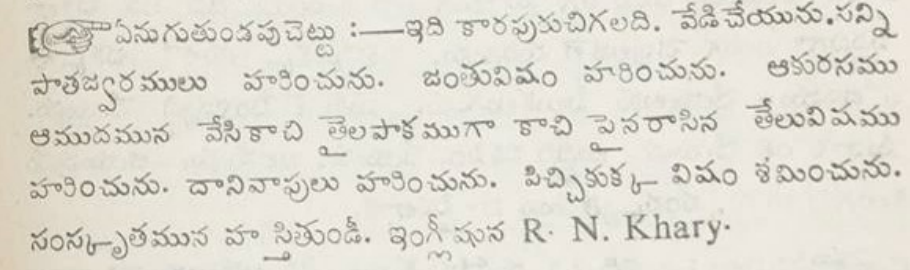 ఏనుగుతుండపుచెట్టు :—ఇది కారపురుచిగలది. వేడిచేయును. సన్ని
పాతజ్వరములు హరించును. జంతువిషం హరించును. ఆకురసము
ఆముదమున వేసికాచి తైలపాకముగా కాచి పైనరాసిన తేలువిషము
హరించును. దానివాపులు హరించును. పిచ్చికుక్క విషం శమించును.
సంస్కృతమున హస్తితుండీ. ఇంగ్లీషున R. N. Khary.